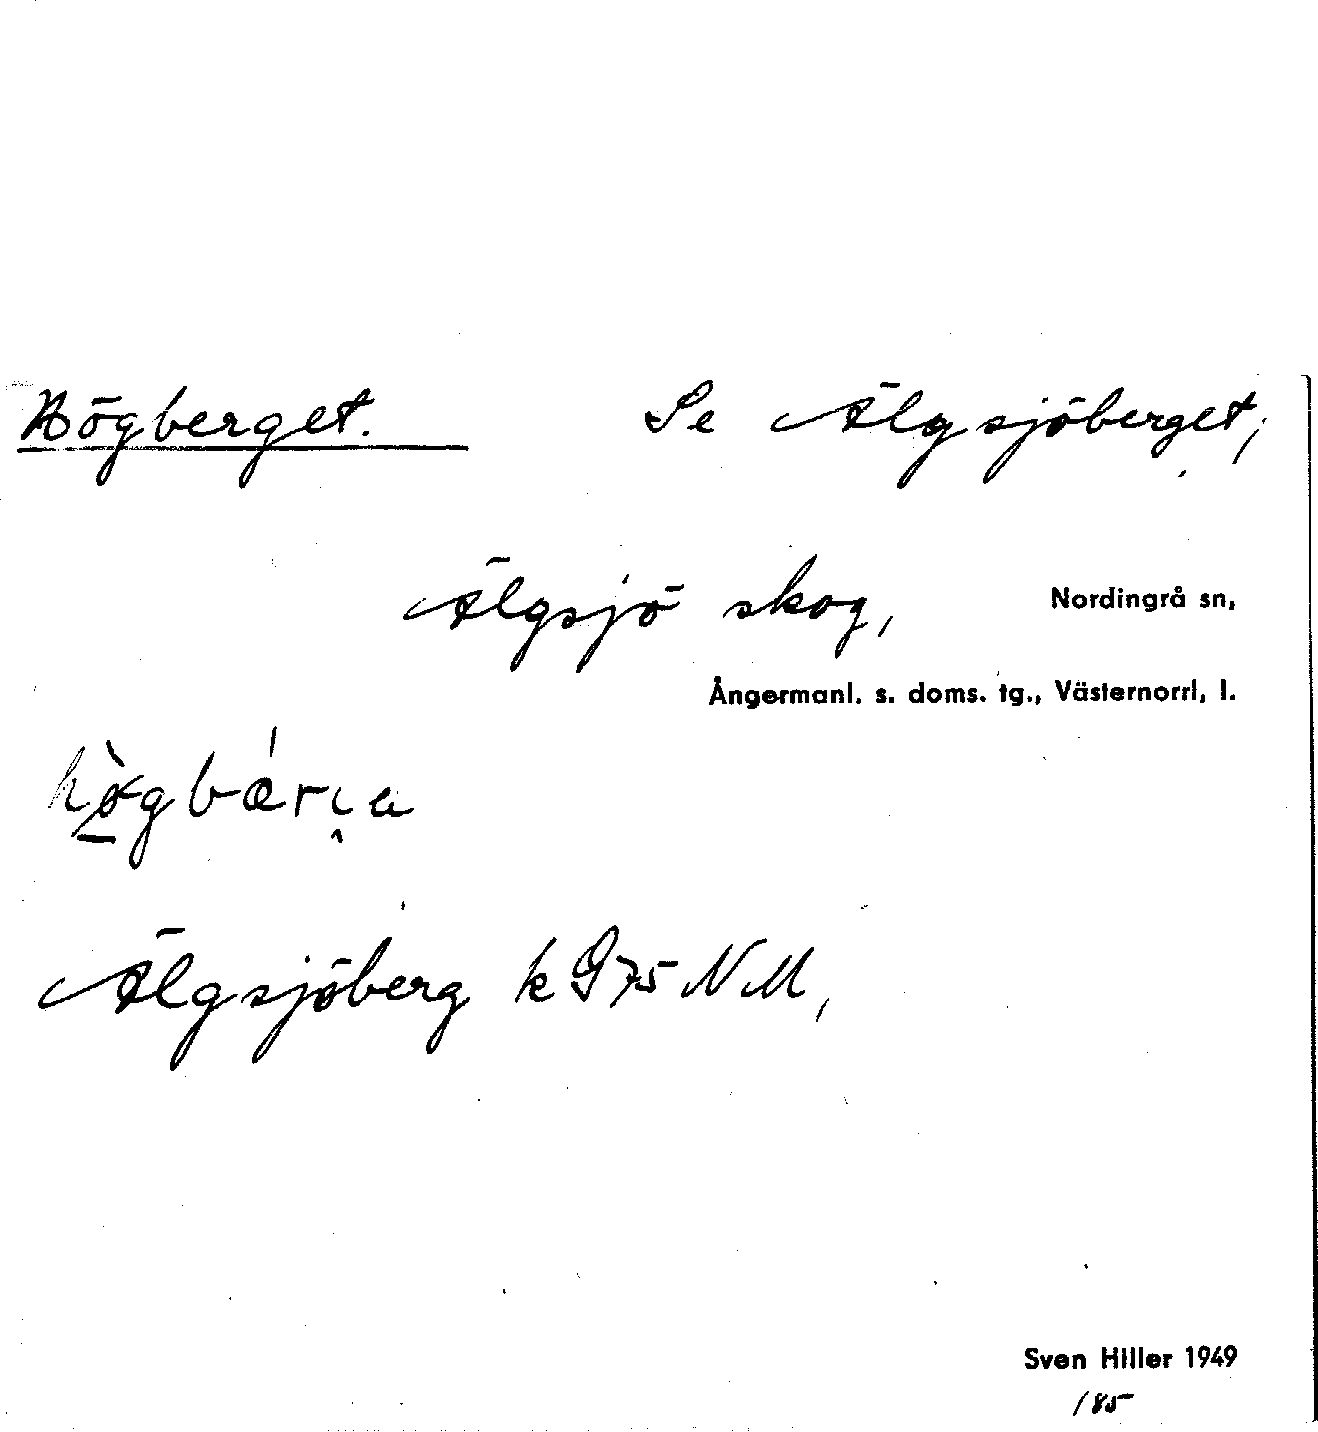 Högberget. Se Älgsjöberget,
Älgsjö skog, Nordingrå sn,
Ångermanl. s. doms. tg., Västernorrl. l.
Älgsjöberg k G75 NM,
Sven Hiller 1949
185